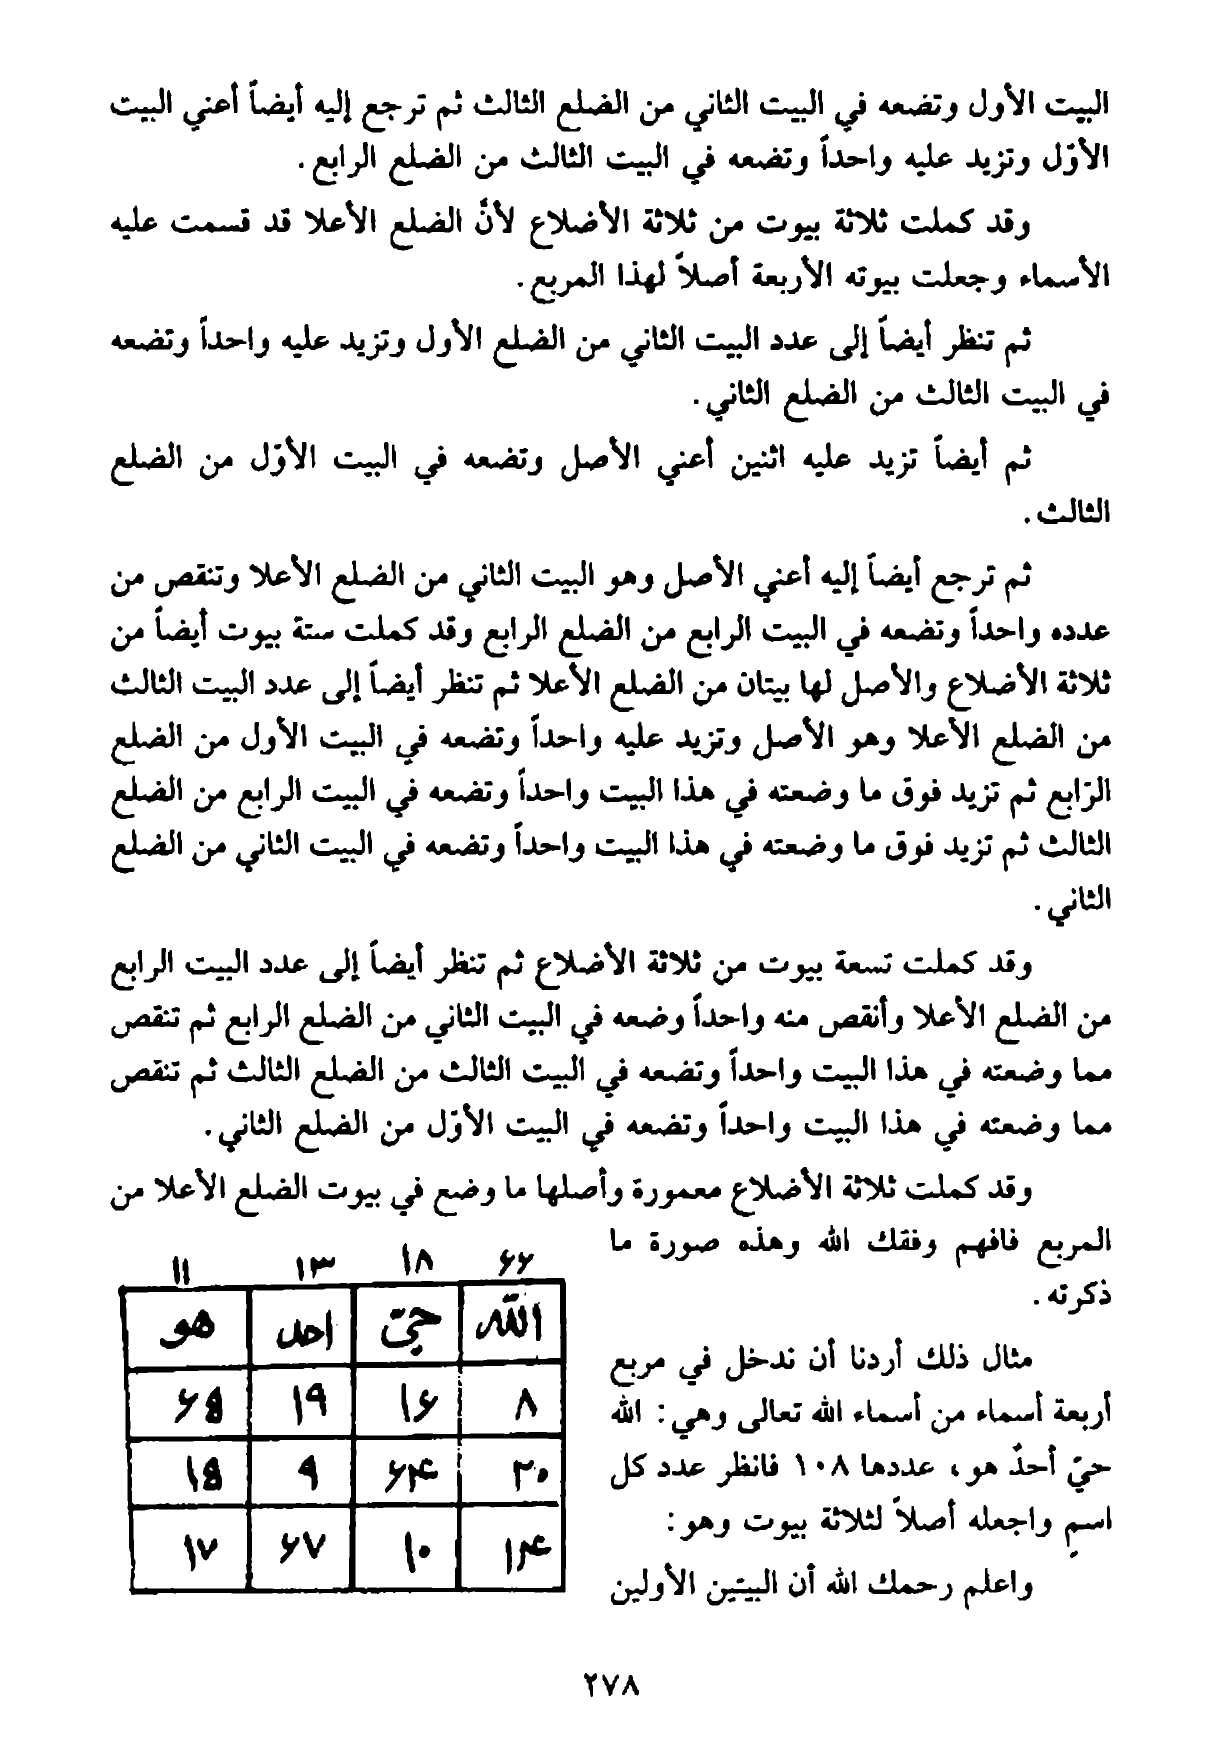 البيت الأول وتضعه في البيت الثاني من الضلع الثالث ثم ترجع إليه أيضاً أعني البيت
الأوّل وتزيد عليه واحداً وتضعه في البيت الثالث من الضلع الرابع.
وقد كملت ثلاثة بيوت من ثلاثة الأضلاع لأنَّ الضلع الأعلا قد قسمت عليه
الأسماء وجعلت بيوته الأربعة أصلاً لهذا المربع.
ثم تنظر أيضاً إلى عدد البيت الثاني من الضلع الأول وتزيد عليه واحداً وتضعه
في البيت الثالث من الضلع الثاني.
ثم أيضاً تزيد عليه اثنين أعني الأصل وتضعه في البيت الأوّل من الضلع
الثالث.
ثم ترجع أيضاً إليه أعني الأصل وهو البيت الثاني من الضلع الأعلا وتنقص من
عدده واحداً وتضعه في البيت الرابع من الضلع الرابع وقد كملت ستة بيوت أيضاً من
ثلاثة الأضلاع والأصل لها بيتان من الضلع الأعلا ثم تنظر أيضاً إلى عدد البيت الثالث
من الضلع الأعلا وهو الأصل وتزيد عليه واحداً وتضعه في البيت الأول من الضلع
الرّابع ثم تزيد فوق ما وضعته في هذا البيت واحداً وتضعه في البيت الرابع من الضلع
الثالث ثم تزيد فوق ما وضعته في هذا البيت واحداً وتضعه في البيت الثاني من الضلع
الثاني.
وقد كملت تسعة بيوت من ثلاثة الأضلاع ثم تنظر أيضاً إلى عدد البيت الرابع
من الضلع الأعلا وأنقص منه واحداً وضعه في البيت الثاني من الضلع الرابع ثم تنقص
مما وضعته في هذا البيت واحداً وتضعه في البيت الثالث من الضلع الثالث ثم تنقص
مما وضعته في هذا البيت واحداً وتضعه في البيت الأوّل من الضلع الثاني.
وقد كملت ثلاثة الأضلاع معمورة وأصلها ما وضع في بيوت الضلع الأعلا من
المربع فافهم وفقك الله وهذه صورة ما
ذكرته.
مثال ذلك أردنا أن ندخل في مربع
أربعة أسماء من أسماء الله تعالى وهي: الله
حيّ أحدٌ هو، عددها ١٠٨ فانظر عدد كل
اسمٍ واجعله أصلاً لثلاثة بيوت وهو:
واعلم رحمك الله أن البيتين الأولين
۶۶ ۱۸ ۱۳ ۱۱
الله حيّ احد هو
۸ ۱۶ ۱۹ ۶۵
۲۰ ۶۴ ۹ ۱۵
۱۴ ۱۰ ۶۷ ۱۷
٢٧٨